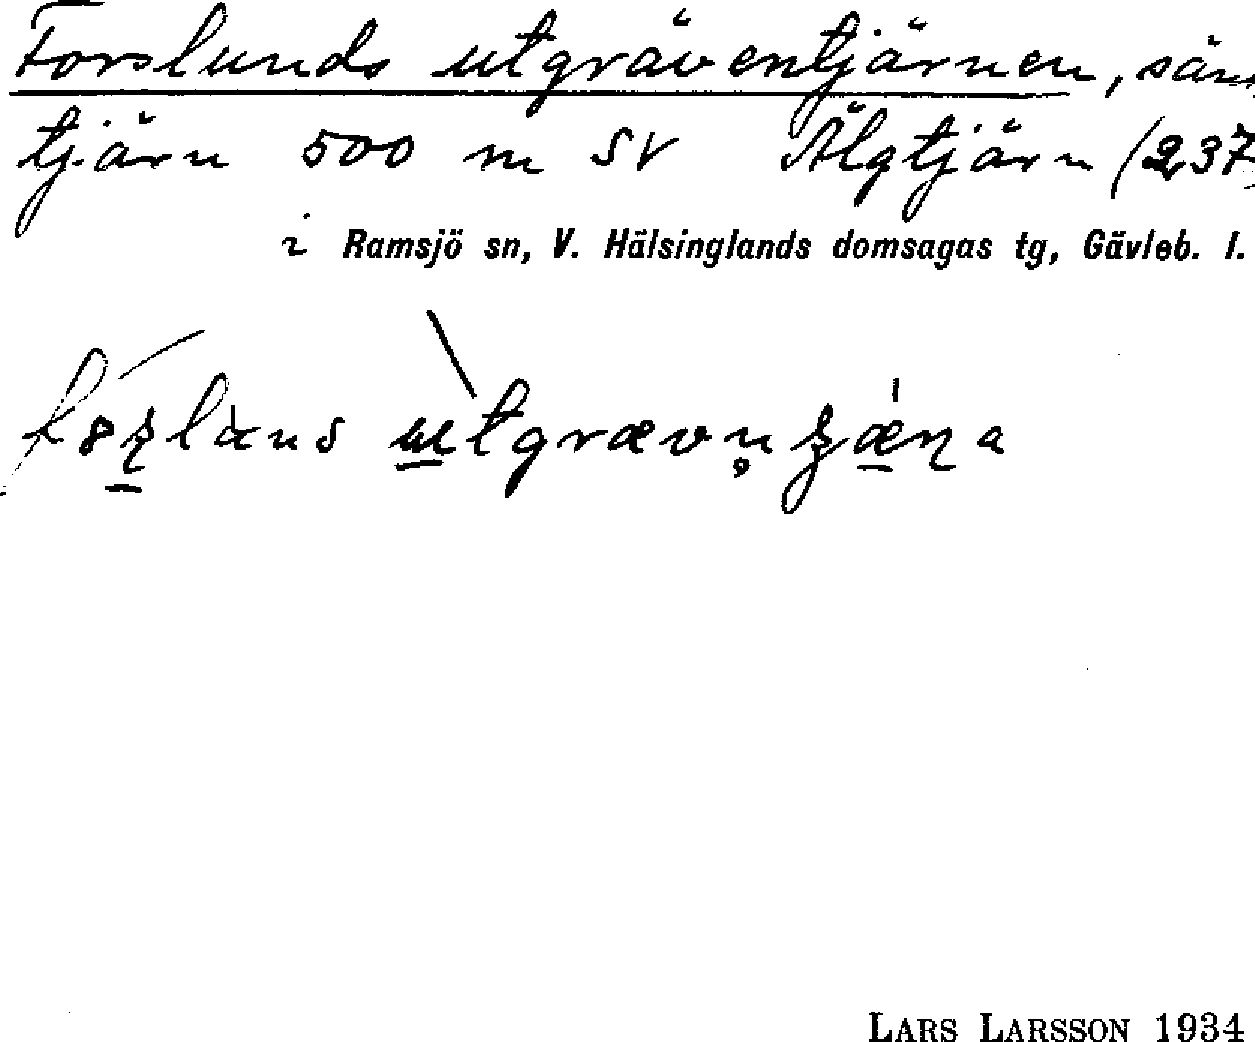 Forslunds utgräventjärnen,
tjärn 500 m SV Älgtjärn (237
i Ramsjö sn, V. Hälsinglands domsagas tg, Gävleb. l.
LARS LARSSON 1934